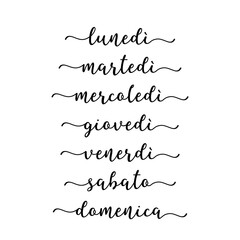 lunedì
martedì
mercoledì
giovedì
venerdì
sabato
domenica